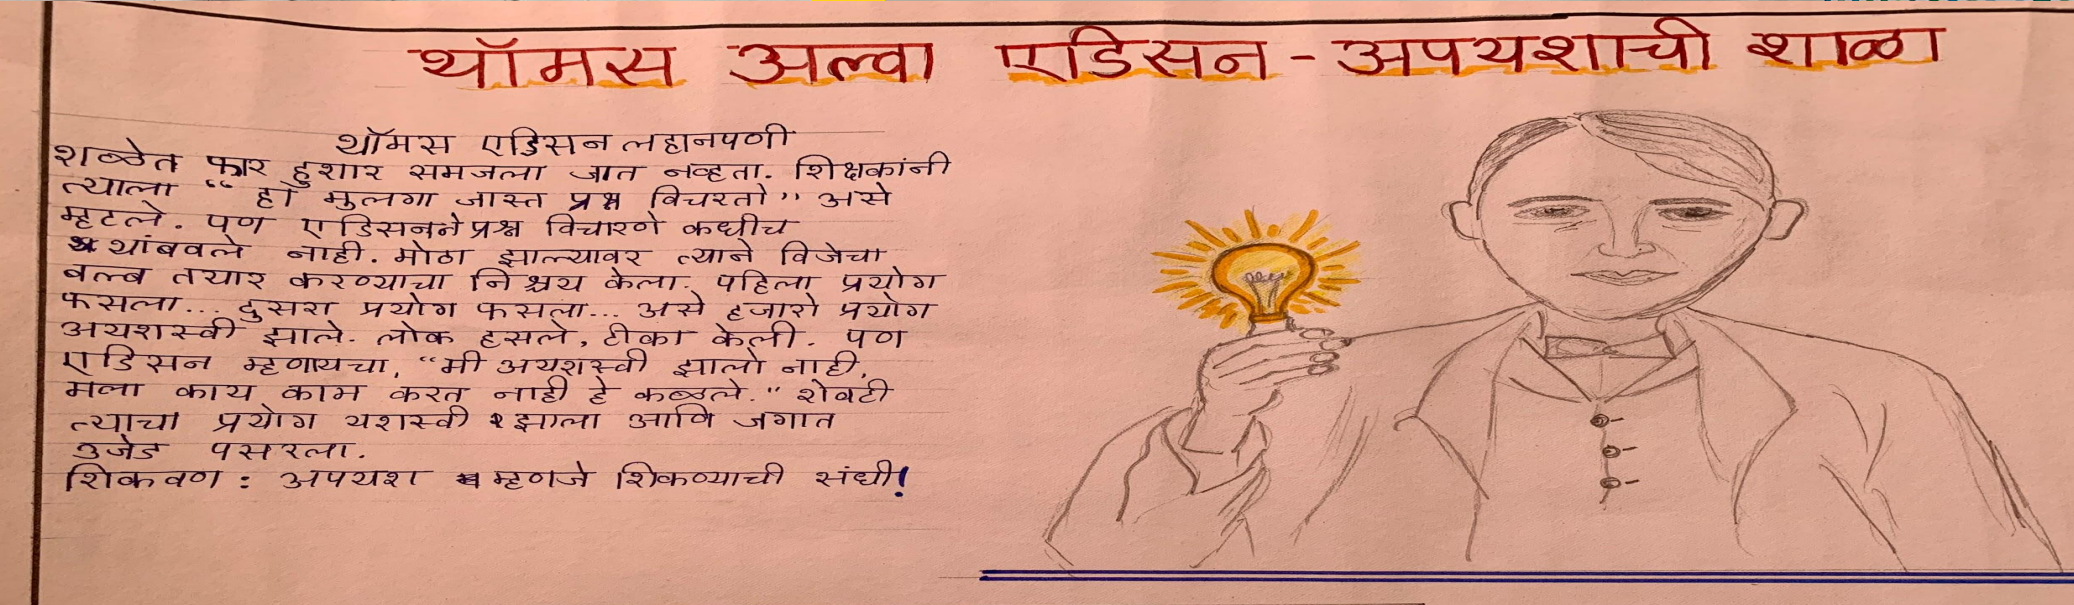 थॉमस अल्वा एडिसन - अपयशाची शाळा
थॉमस एडिसन लहानपणी
शळेत फार हुशार समजला जात नव्हता. शिक्षकांनी
त्याला “हा मुलगा जास्त प्रश्न विचरतो” असे
म्हटले. पण एडिसनने प्रश्न विचारणे कधीच
थांबवले नाही. मोठा झाल्यावर त्याने विजेचा
बल्ब तयार करण्याचा निश्चय केला. पहिला प्रयोग
फसला... दुसरा प्रयोग फसला... असे हजारो प्रयोग
अयशस्वी झाले. लोक हसले, टीका केली. पण
एडिसन म्हणायचा, “मी अयशस्वी झालो नाही,
मला काय काम करत नाही हे कळले.” शेवटी
त्याचा प्रयोग यशस्वी झाला आणि जगात
उजेड पसरला.
शिकवण : अपयश म्हणजे शिकण्याची संधी!